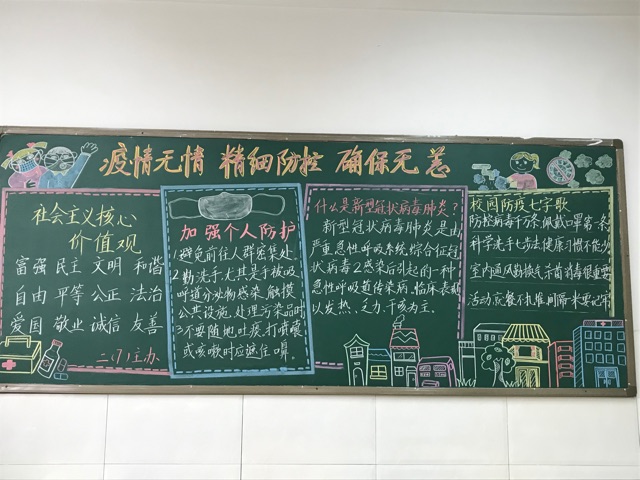 疫情无情 精细防控 确保无恙
社会主义核心
价值观
富强 民主 文明 和谐
自由 平等 公正 法治
爱国 敬业 诚信 友善
二(7)主办
加强个人防护
1避免前往人群密集处
2勤洗手,尤其是手被吸
呼道分泌物感染、触摸
公共设施、处理污染品时
3不要随地吐痰,打喷嚏
或咳嗽时应遮住口鼻.
什么是新型冠状病毒肺炎?
新型冠状病毒肺炎是由
严重急性呼吸系统综合征冠
状病毒2感染后引起的一种
急性呼吸道传染病.临床表现
以发热、乏力、干咳为主.
校园防疫七字歌
防控病毒千万条,佩戴口罩第一条
科学洗手七步法,健康习惯不能少
室内通风勤换气,杀菌消毒很重要
活动就餐不扎堆,间隔一米要记牢